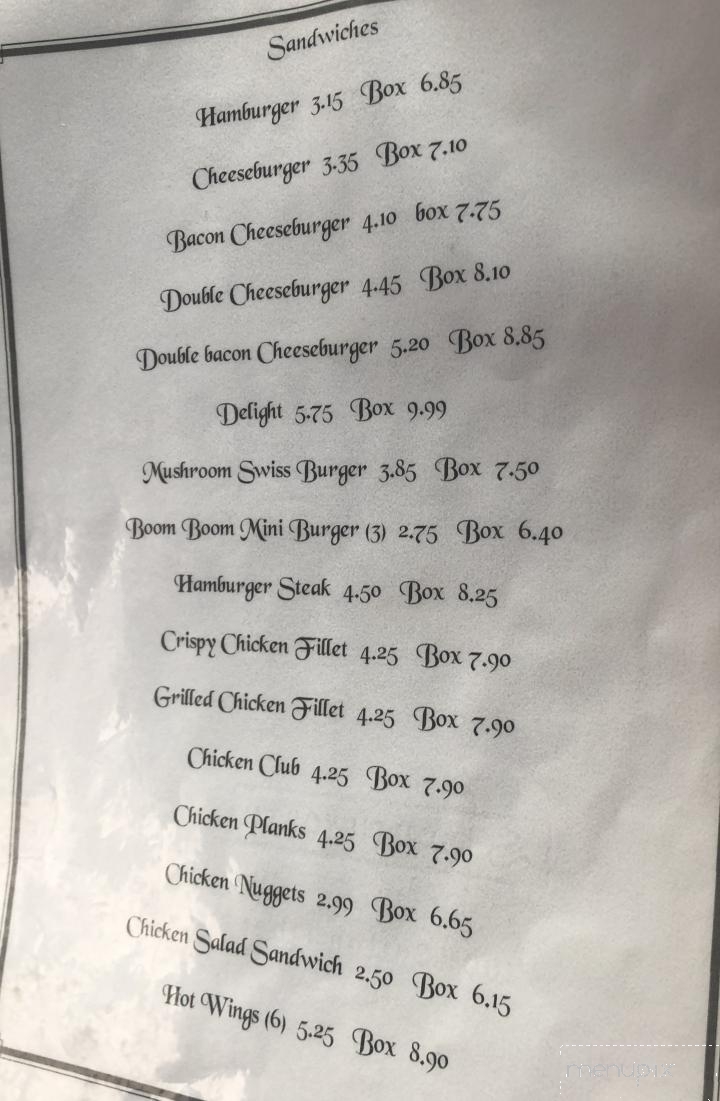 Sandwiches
Hamburger 3.15 Box 6.85
Cheeseburger 3.35 Box 7.10
Bacon Cheeseburger 4.10 box 7.75
Double Cheeseburger 4.45 Box 8.10
Double bacon Cheeseburger 5.20 Box 8.85
Delight 5.75 Box 9.99
Mushroom Swiss Burger 3.85 Box 7.50
Boom Boom Mini Burger (3) 2.75 Box 6.40
Hamburger Steak 4.50 Box 8.25
Crispy Chicken Fillet 4.25 Box 7.90
Grilled Chicken Fillet 4.25 Box 7.90
Chicken Club 4.25 Box 7.90
Chicken Planks 4.25 Box 7.90
Chicken Nuggets 2.99 Box 6.65
Chicken Salad Sandwich 2.50 Box 6.15
Hot Wings (6) 5.25 Box 8.90